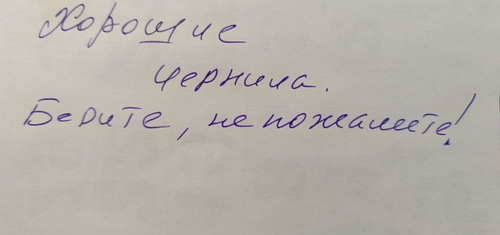 Хорошие
чернила.
Берите, не пожалеете!